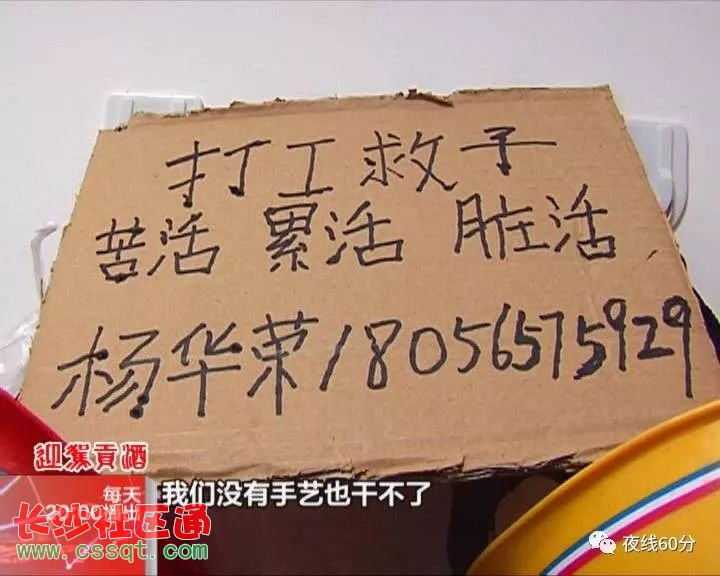 打工救子
苦活 累活 脏活
杨华荣18056575929
迎驾贡酒
每天
20:00播出
我们没有手艺也干不了
长沙社区通
www.cssqt.com
夜线60分